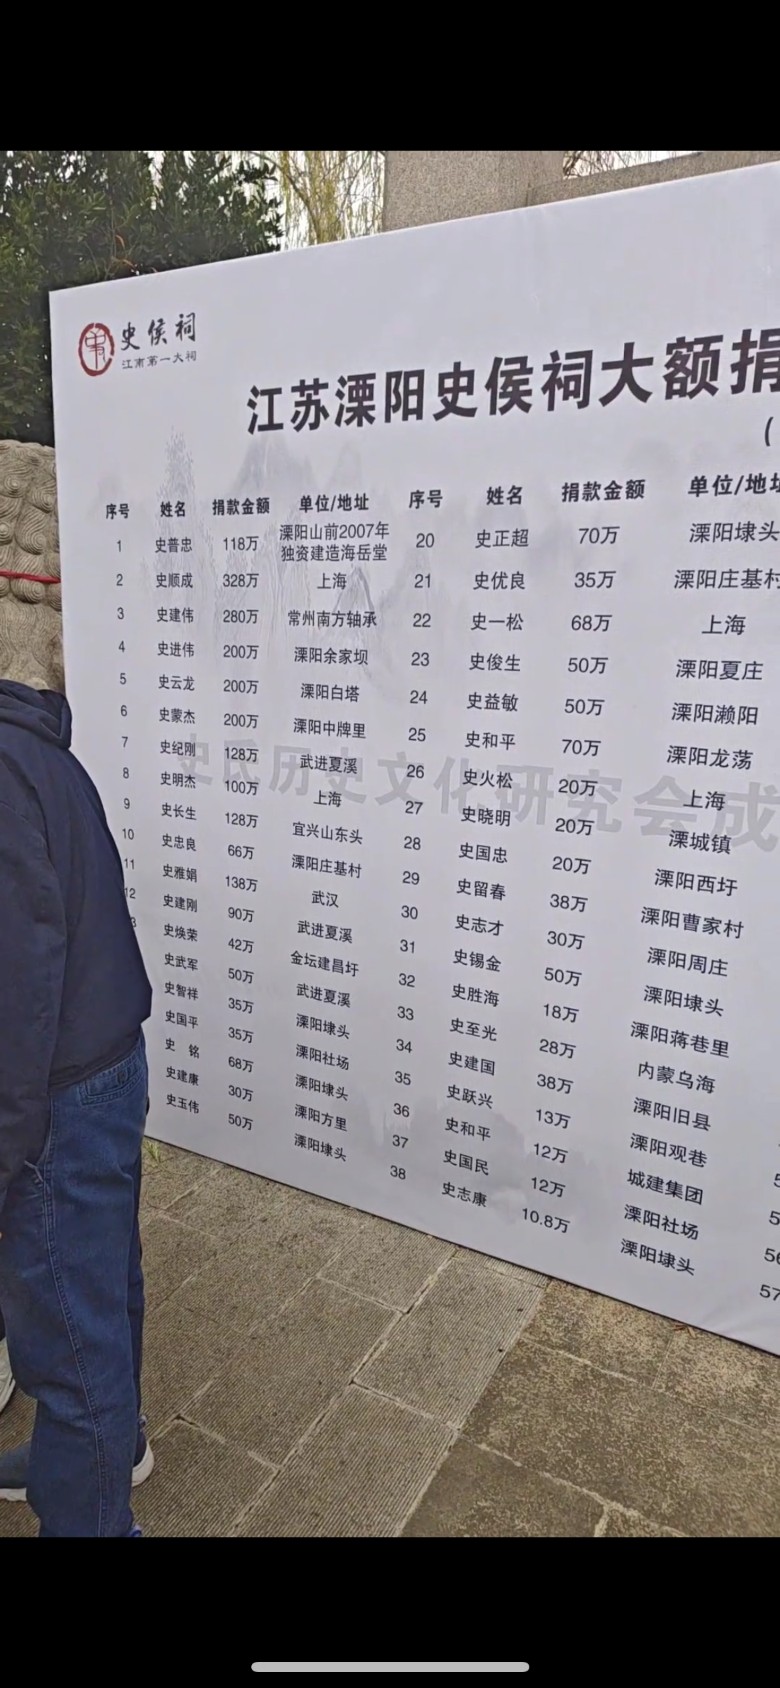 史侯祠
江南第一大祠
江苏溧阳史侯祠大额捐
(
序号 姓名 捐款金额 单位/地址
1 史普忠 118万 溧阳山前2007年
独资建造海岳堂
2 史顺成 328万 上海
3 史建伟 280万 常州南方轴承
4 史进伟 200万 溧阳余家坝
5 史云龙 200万 溧阳白塔
6 史蒙杰 200万 溧阳中牌里
7 史纪刚 128万 武进夏溪
8 史明杰 100万 上海
9 史长生 128万 宜兴山东头
10 史忠良 66万 溧阳庄基村
11 史雅娟 138万 武汉
12 史建刚 90万 武进夏溪
3 史焕荣 42万 金坛建昌圩
史武军 50万 武进夏溪
史智祥 35万 溧阳埭头
史国平 35万 溧阳社场
史 铭 68万 溧阳埭头
史建康 30万 溧阳方里
史玉伟 50万 溧阳埭头
序号 姓名 捐款金额 单位/地址
20 史正超 70万 溧阳埭头
21 史优良 35万 溧阳庄基村
22 史一松 68万 上海
23 史俊生 50万 溧阳夏庄
24 史益敏 50万 溧阳濑阳
25 史和平 70万 溧阳龙荡
26 史火松 20万 上海
27 史晓明 20万 溧城镇
28 史国忠 20万 溧阳西圩
29 史留春 38万 溧阳曹家村
30 史志才 30万 溧阳周庄
31 史锡金 50万 溧阳埭头
32 史胜海 18万 溧阳蒋巷里
33 史至光 28万 内蒙乌海
34 史建国 38万 溧阳旧县
35 史跃兴 13万 溧阳观巷
36 史和平 12万 城建集团
37 史国民 12万 溧阳社场
38 史志康 10.8万 溧阳埭头
56
57
史氏历史文化研究会成